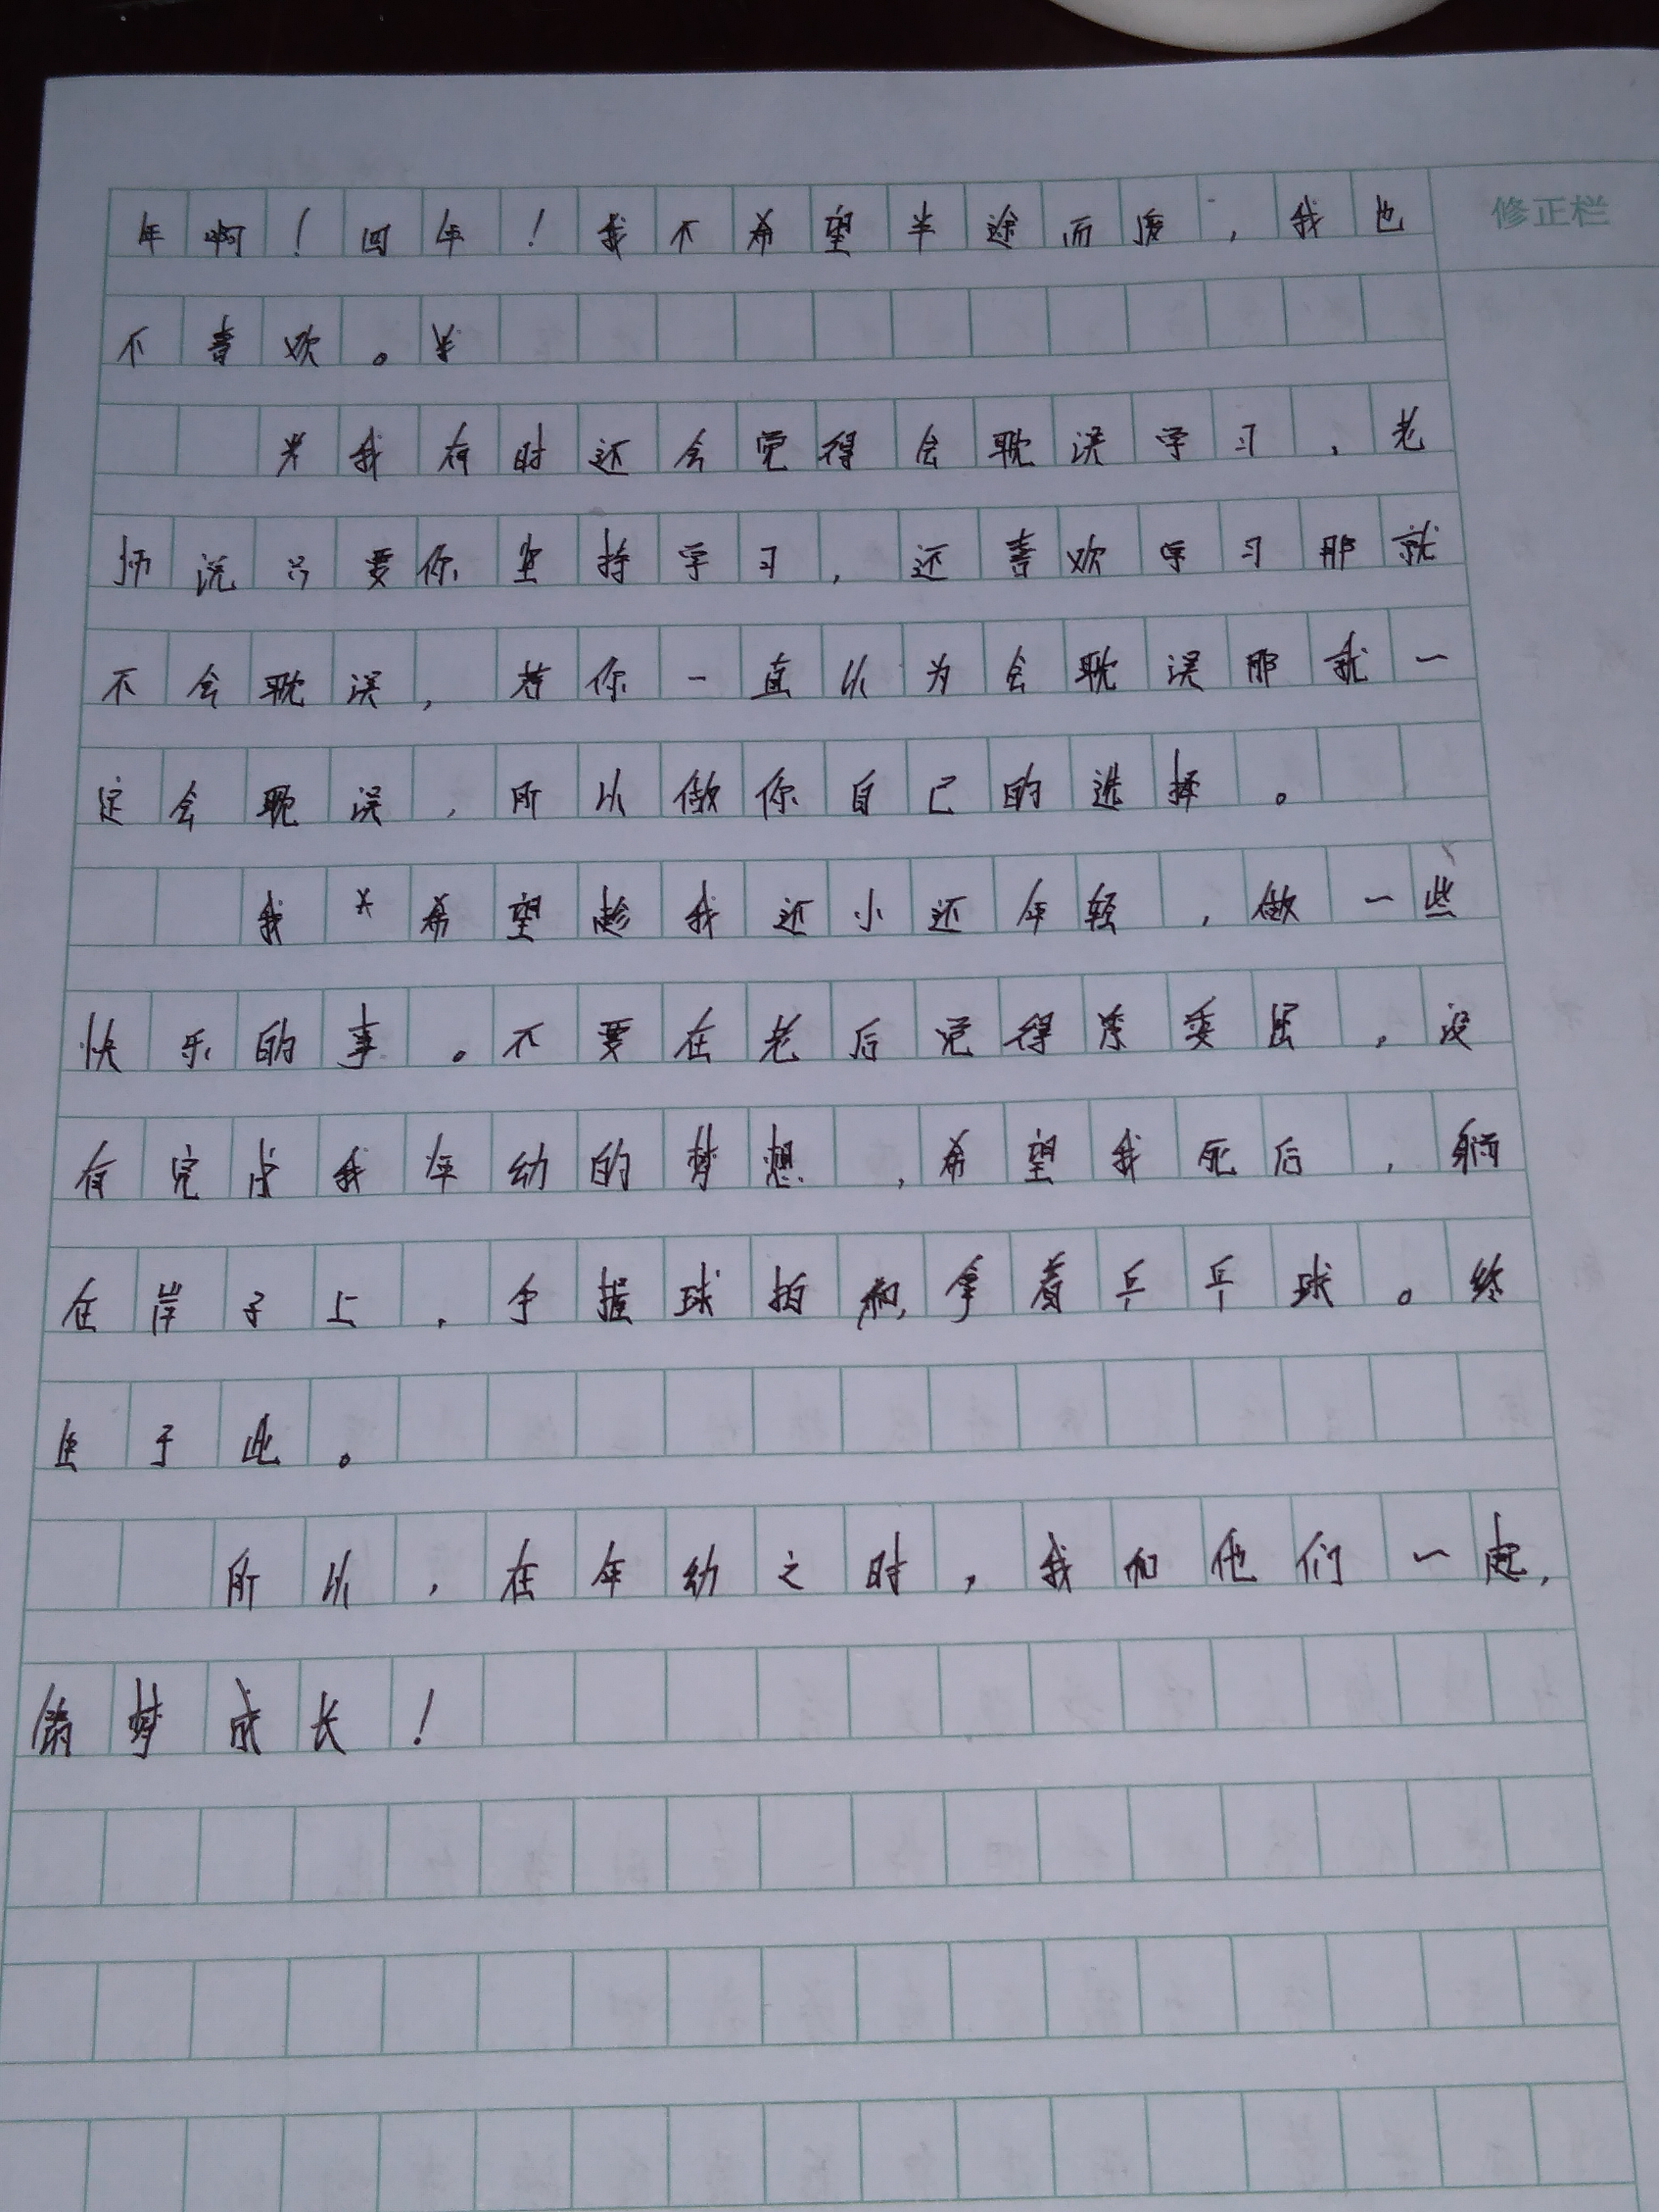 年啊！四年！我不希望半途而废，我也
修正栏
不喜欢。
我有时还会觉得会耽误学习，老
师说只要你坚持学习，还喜欢学习那就
不会耽误，若你一直以为会耽误那就一
定会耽误，所以做你自己的选择。
我希望趁我还小还年轻，做一些
快乐的事。不要在老后觉得委屈，没
有完成我年幼的梦想，希望我死后，躺
在岸子上，手握球拍和拿着乒乓球。终
于此。
所以，在年幼之时，我和他们一起，
梦成长！